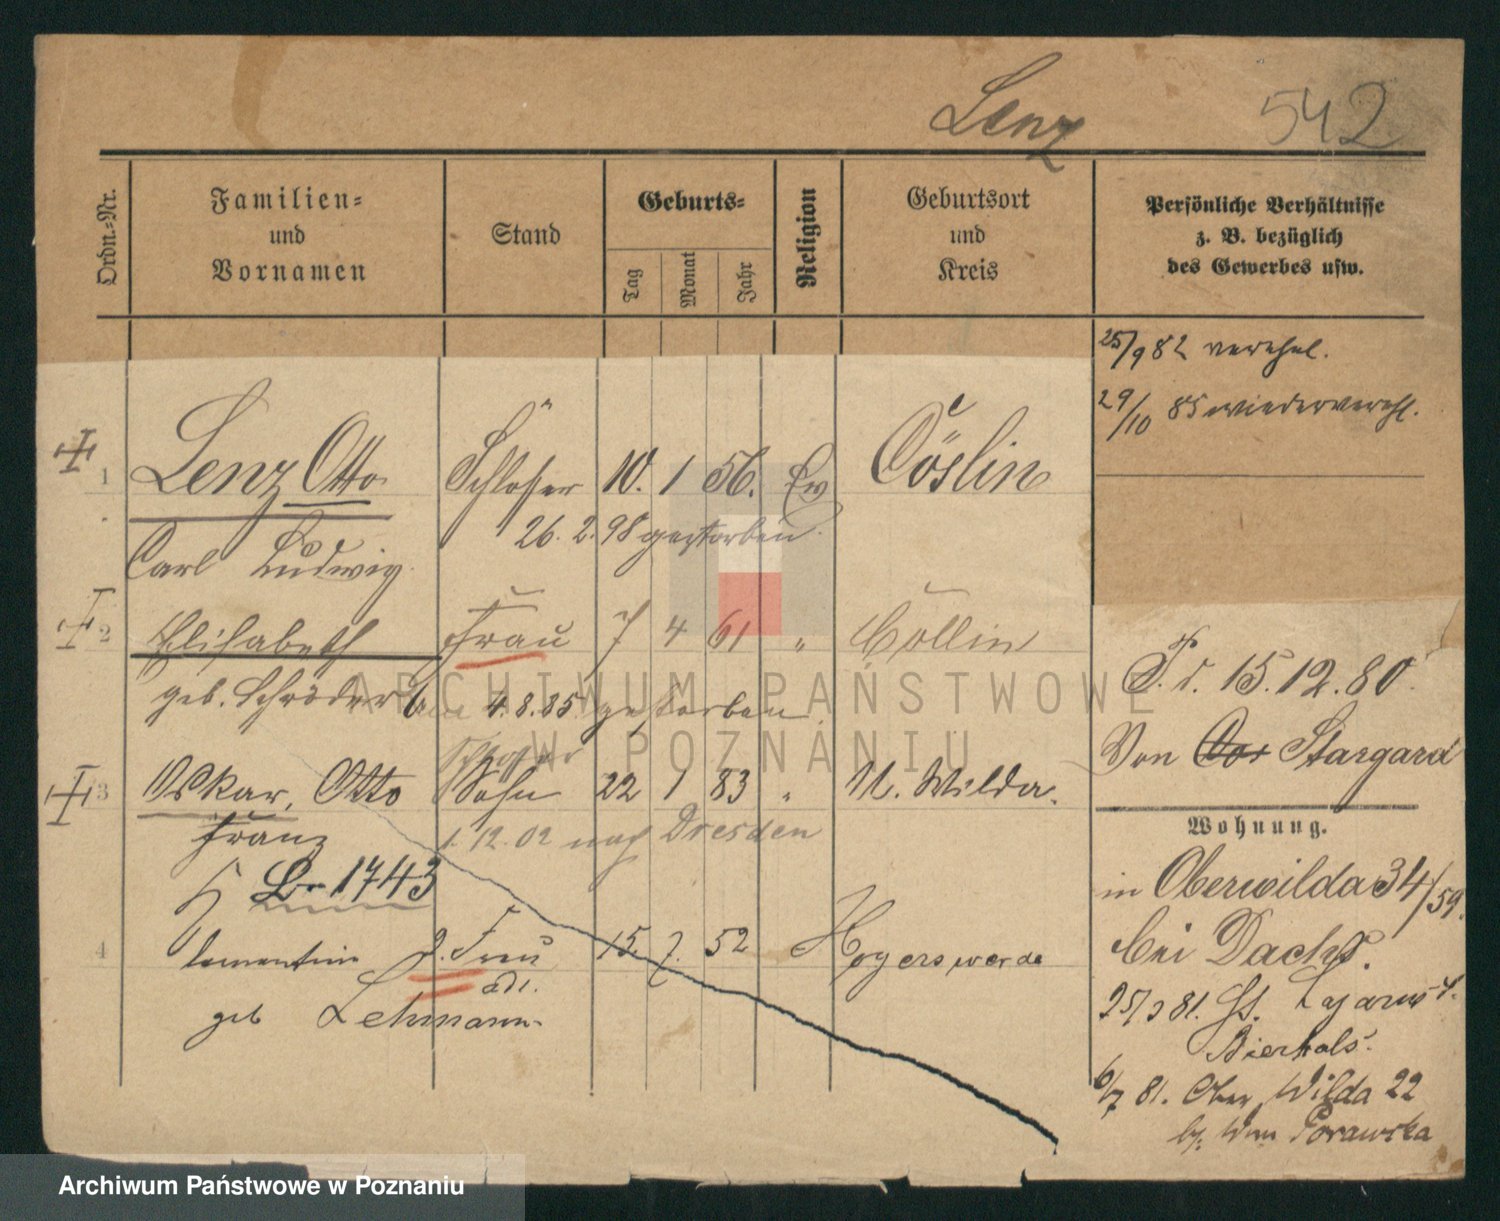 Lenz 542
Ordn.-Nr.
Familien-
und
Vornamen
Stand
Geburts-
Tag
Monat
Jahr
Religion
Geburtsort
und
Kreis
Persönliche Verhältnisse
z. B. bezüglich
des Gewerbes usw.
25/9 82 verehel.
29/10 85 wiederverehl.
1 Lenz Otto Schlosser 10. 1 56. Ev Cöslin
26. 2. 98 gestorben.
Carl Ludwig.
2 Elisabeth Frau 7 4 61 " Cöllin
geb. Schröder 4. 8. 85. gestorben.
Schlosser
3 Oskar, Otto Sohn 22 1 83 " U. Wilda.
Franz 1. 12. 02 nach Dresden
Br 1743
4 2. Frau 15. 7. 52 Hoyerswerda
geb Lehmann
Z. d. 15. 12. 80.
Von Stargard
Wohnung.
in Oberwilda 34/59.
bei Dachs.
25/3 81.
Bierhals.
6/7 81. Ober Wilda 22
Porawska
ARCHIWUM PAŃSTWOWE
W POZNANIU
Archiwum Państwowe w Poznaniu